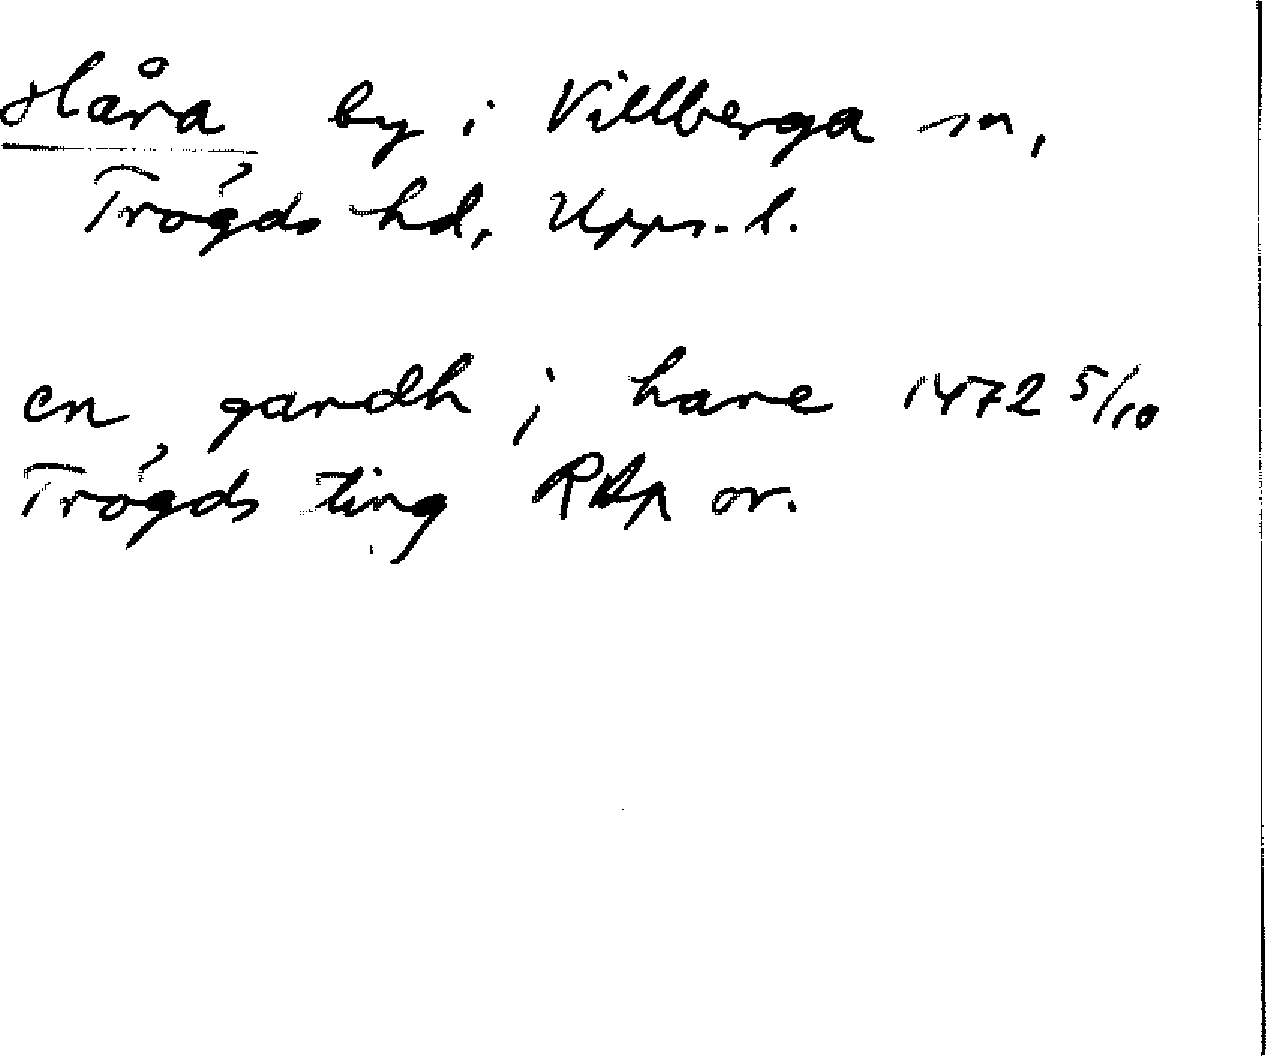 Håra by i Villberga sn,
Trögds hd, Upps. l.
en gardh j hare 1472 5/10
Trögds ting RAp or.